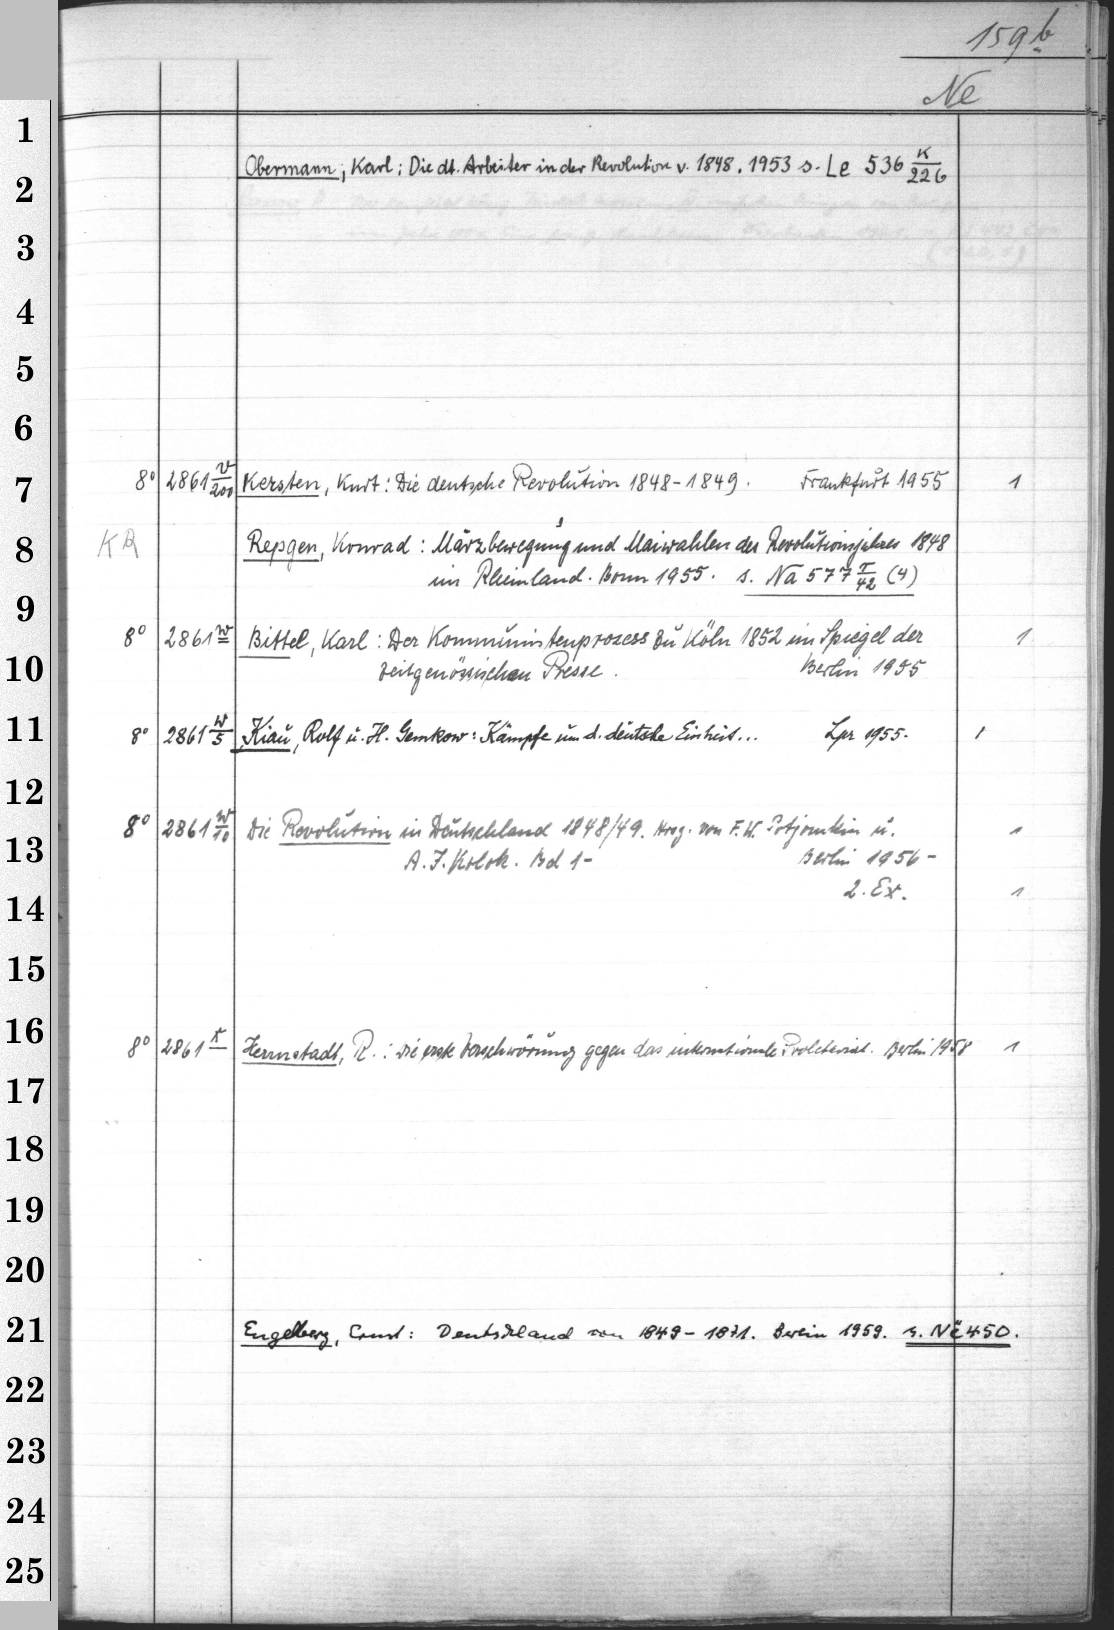 159b
Ne
1
Obermann, Karl: Die dt. Arbeiter in der Revolution v. 1848. 1953 s. Le 536 K/226
2
3
4
5
6
7 8° 2861 v/200 Kersten, Kurt: Die deutsche Revolution 1848-1849. Frankfurt 1955 1
8 KR Repgen, Konrad: Märzbewegung und Maiwahlen des Revolutionsjahres 1848
im Rheinland. Bonn 1955. s. Na 577 /42 (4)
9
8° 2861 w Bittel, Karl: Der Kommunistenprozess zu Köln 1852 im Spiegel der 1
10 zeitgenössischen Presse. Berlin 1955
11 8° 2861 w/5 Kiau, Rolf u. H. Gemkow: Kämpfe um d. deutsche Einheit... Lpz 1955. 1
12
8° 2861 w/10 Die Revolution in Deutschland 1848/49. Hrsg. von F.W. Potjomkin u. 1
13 A.I. Molok. Bd 1- Berlin 1956-
14 2. Ex. 1
15
16 8° 2861 x Herrnstadt, R.: Die erste Verschwörung gegen das internationale Proletariat. Berlin 1958 1
17
18
19
20
21 Engelberg, Ernst: Deutschland von 1849-1871. Berlin 1959. s. Në 450.
22
23
24
25